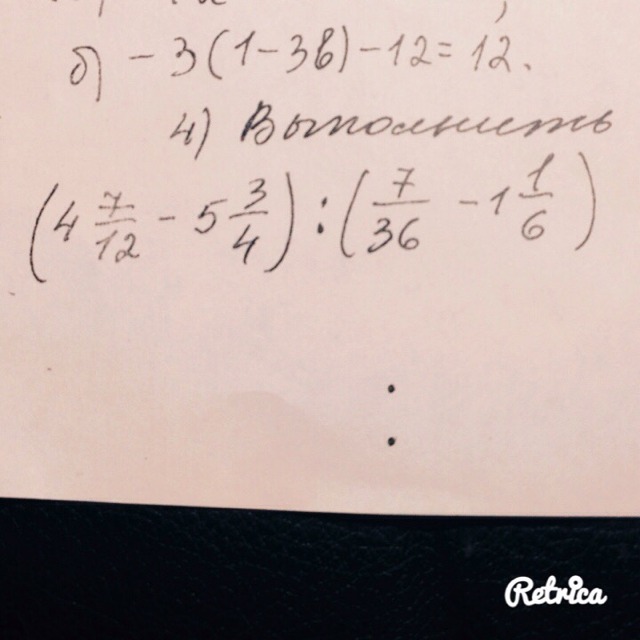 б) -3(1-3в)-12=12.
4) Выполнить
(4 7/12 - 5 3/4) : (7/36 - 1 1/6)
:
Retrica